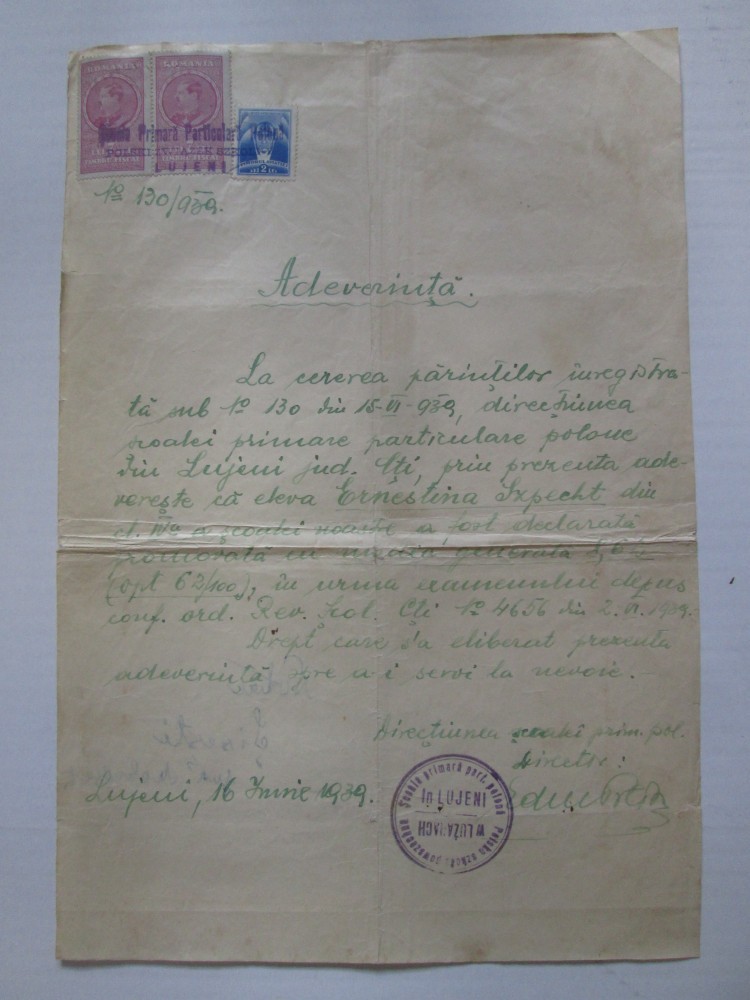 ROMANIA ROMANIA
Primară Particulară
LUJENI
LEI 2
Nº 130/939.
Adeverință.
La cererea părinților înregistra-
tă sub Nº 130 din 15-VI-939, direcțiunea
școalei primare particulare polone
din Lujeni jud. Cți, prin prezenta ade-
verește că eleva Ernestina Szpecht din
cl. IVa a școalei noastre a fost declarată
promovată cu media generală
(opt 62/100), în urma examenului depus
conf. ord. Rev. Școl. Cți Nº 4656 din 2.VI.1939.
Drept care s'a eliberat prezenta
adeverință spre a-i servi la nevoie.
Direcțiunea școalei prim. pol.
Director:
Lujeni, 16 Iunie 1939.
Școala primară part. polonă
în LUJENI
W ŁUŻANACH
Polska szkoła powszechna